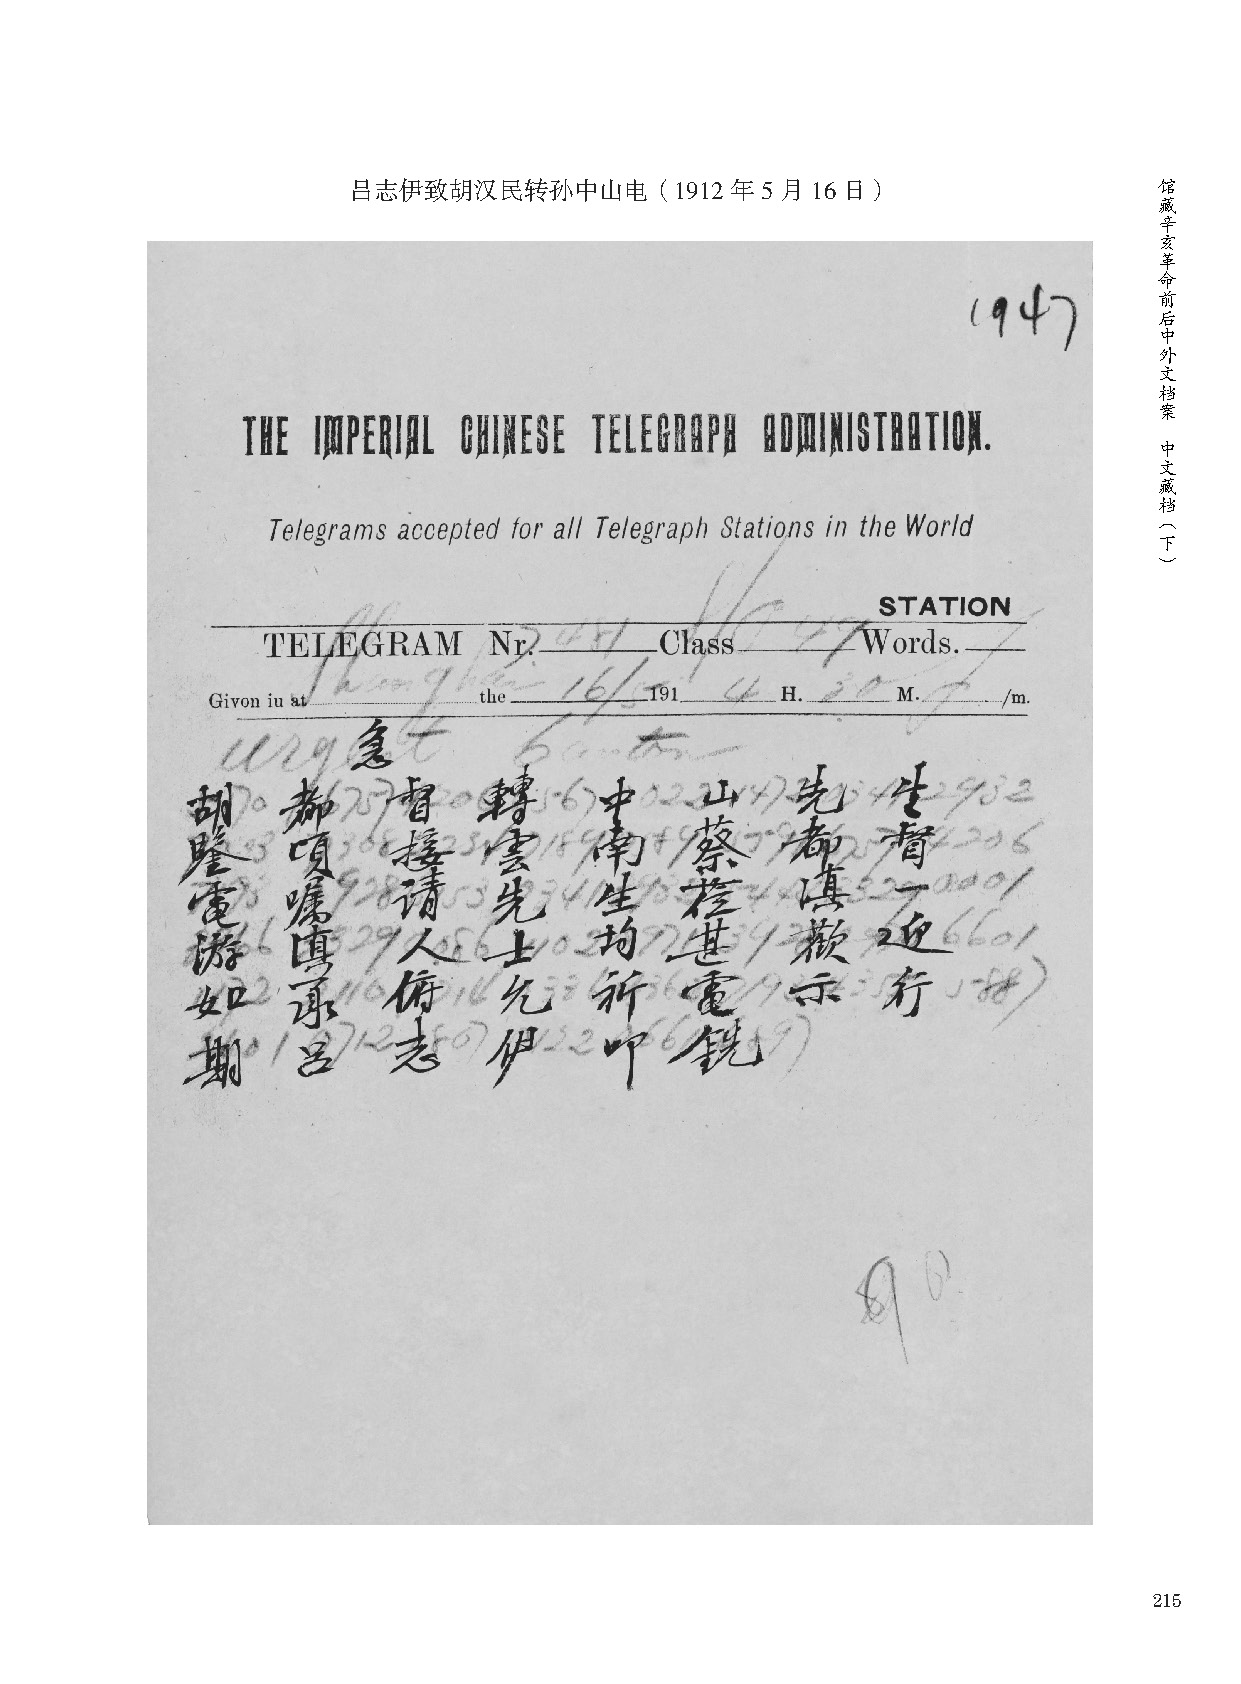 吕志伊致胡汉民转孙中山电（1912 年 5 月 16 日）
馆藏辛亥革命前后中外文档案 中文藏档（下）
1947
THE IMPERIAL CHINESE TELEGRAPH ADMINISTRATION.
Telegrams accepted for all Telegraph Stations in the World
STATION
TELEGRAM Nr. 481 Class Words.
Given in at Shanghai the 16/5 191 4 H. 30 M. /m.
urgent 急 Canton
胡都督轉中山先生
鑒頃接雲南蔡都督
電嘱请先生莅滇一
游滇人士均甚歡迎
如承俯允祈電示行
期吕志伊叩銑
215